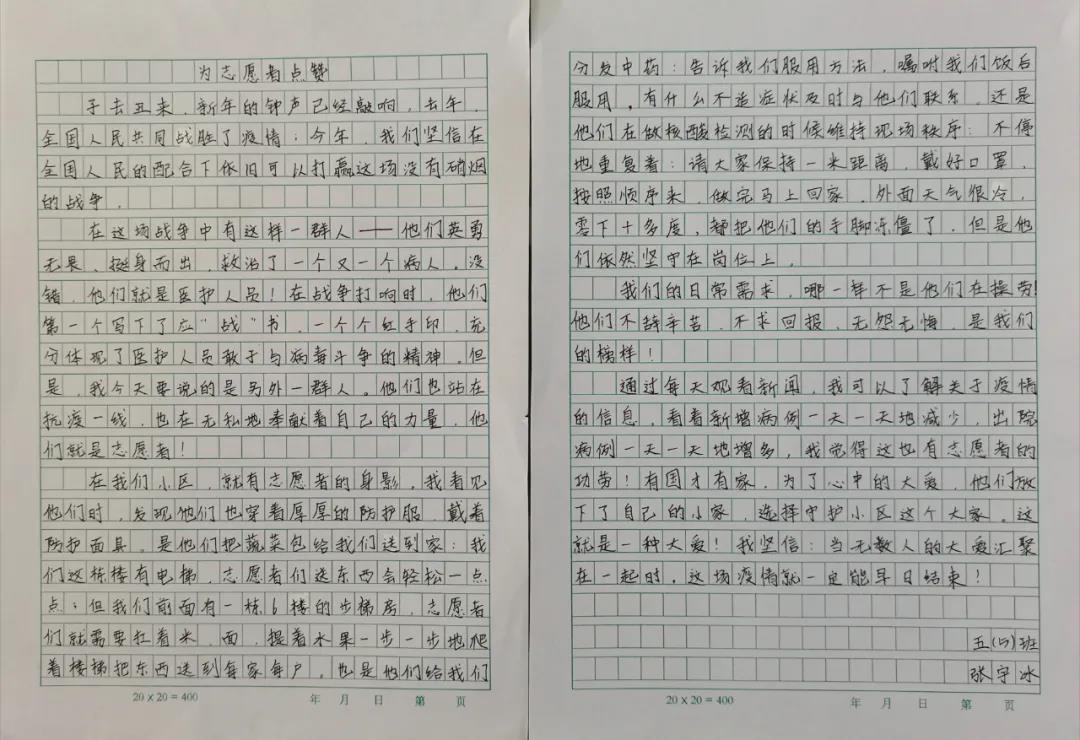 为志愿者点赞
子去丑来，新年的钟声已经敲响，去年，
全国人民共同战胜了疫情；今年，我们坚信在
全国人民的配合下依旧可以打赢这场没有硝烟
的战争。
在这场战争中有这样一群人——他们英勇
无畏、挺身而出，救治了一个又一个病人。没
错，他们就是医护人员！在战争打响时，他们
第一个写下了应“战”书，一个个红手印，充
分体现了医护人员敢于与病毒斗争的精神。但
是，我今天要说的是另外一群人。他们也站在
抗疫一线，也在无私地奉献着自己的力量，他
们就是志愿者！
在我们小区，就有志愿者的身影。我看见
他们时，发现他们也穿着厚厚的防护服，戴着
防护面具。是他们把蔬菜包给我们送到家：我
们这栋楼有电梯，志愿者们送东西会轻松一点
点；但我们前面有一栋6楼的步梯房，志愿者
们就需要扛着米、面，提着水果一步一步地爬
着楼梯把东西送到每家每户。也是他们给我们
20×20=400 年 月 日 第 页
分发中药：告诉我们服用方法，嘱咐我们饭后
服用。有什么不适症状及时与他们联系。还是
他们在做核酸检测的时候维持现场秩序：不停
地重复着：请大家保持一米距离，戴好口罩，
按照顺序来，做完马上回家。外面天气很冷，
零下十多度，都把他们的手脚冻僵了，但是他
们依然坚守在岗位上。
我们的日常需求，哪一样不是他们在操劳！
他们不辞辛苦、不求回报，无怨无悔，是我们
的榜样！
通过每天观看新闻，我可以了解关于疫情
的信息。看着新增病例一天一天地减少，出院
病例一天一天地增多，我觉得这也有志愿者的
功劳！有国才有家，为了心中的大爱，他们放
下了自己的小家，选择守护小区这个大家。这
就是一种大爱！我坚信：当无数人的大爱汇聚
在一起时，这场疫情就一定能早日结束！
五(4)班
张宇冰
20×20=400 年 月 日 第 页